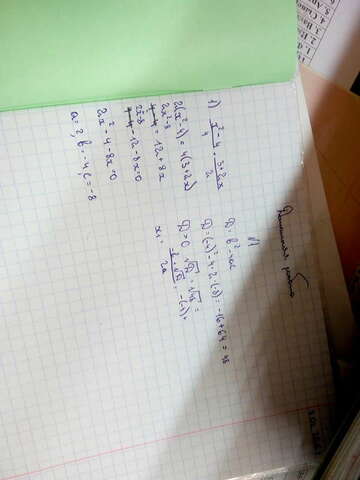 Домашняя работа
№1
1) x²-4/4 = 3+2x/2
2(x²-4) = 4(3+2x)
2x²-8 = 12+8x
2x²-8-12-8x=0
2x²-4-8x=0
a=2, b=-4, c=-8
D = b²-4ac
D=(-4)²-4·2·(-8) = -16+64 = 48
D>0 √D = √48 =
x₁ = -b+√D/2a = -(-4)+